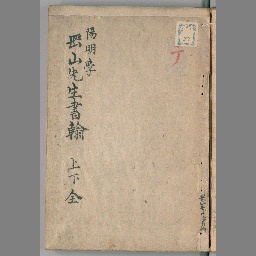 陽明学
岡山先生書翰 上下全